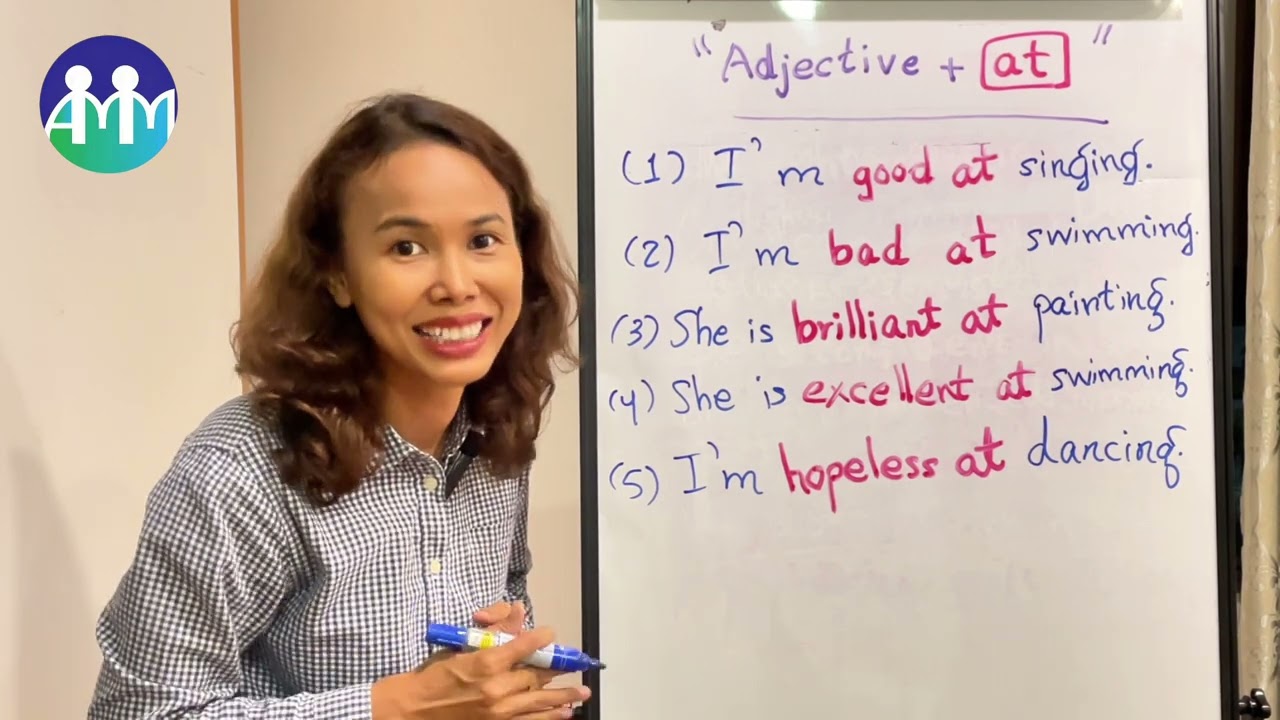 AMM
"Adjective + at"
(1) I'm good at singing.
(2) I'm bad at swimming.
(3) She is brilliant at painting.
(4) She is excellent at swimming.
(5) I'm hopeless at dancing.